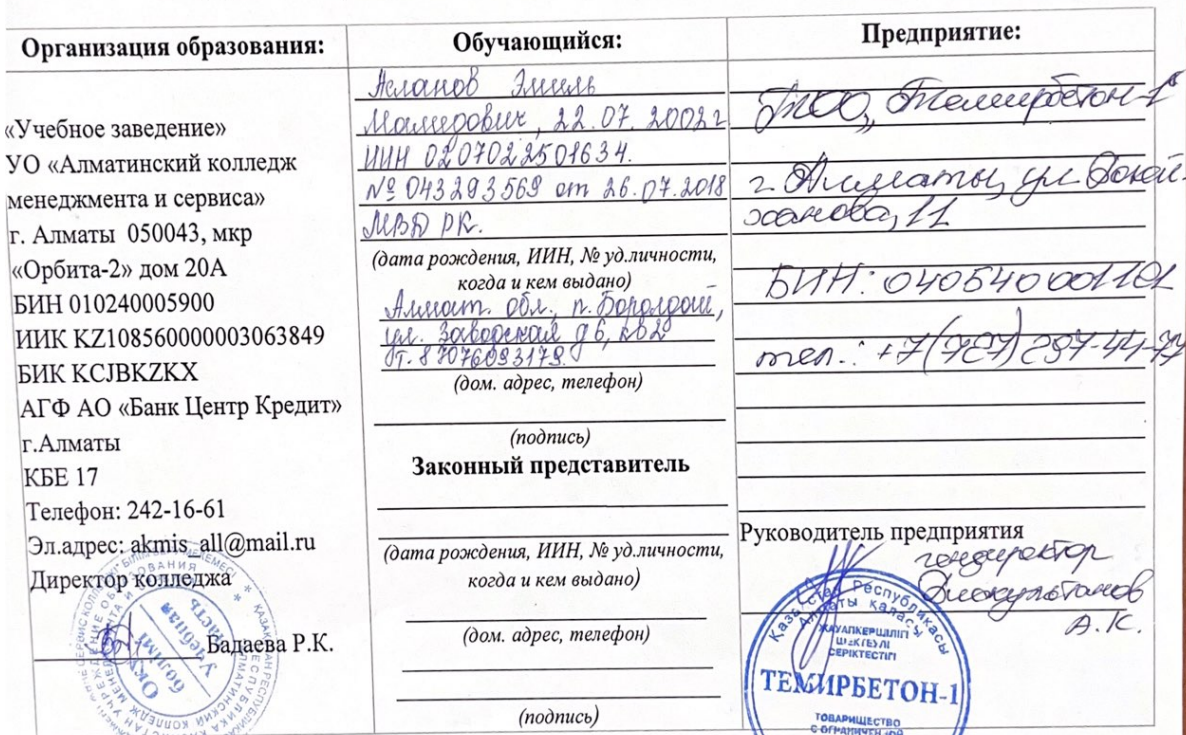 Организация образования:
«Учебное заведение»
УО «Алматинский колледж
менеджмента и сервиса»
г. Алматы 050043, мкр
«Орбита-2» дом 20А
БИН 010240005900
ИИК KZ108560000003063849
БИК KCJBKZKX
АГФ АО «Банк Центр Кредит»
г.Алматы
КБЕ 17
Телефон: 242-16-61
Эл.адрес: akmis_all@mail.ru
Директор колледжа
Бадаева Р.К.
Оқу
бөлімі
Учебная
часть
Обучающийся:
Асланов Эмиль
Мамедович, 22.07.2002г
ИИН 0207022501634.
№ 043293569 от 26.07.2018
МВД РК.
(дата рождения, ИИН, № уд.личности,
когда и кем выдано)
Алмат. обл., п. Боролдай,
ул. Заводская д 6, кв2
т. 87076093179.
(дом. адрес, телефон)
(подпись)
Законный представитель
(дата рождения, ИИН, № уд.личности,
когда и кем выдано)
(дом. адрес, телефон)
(подпись)
Предприятие:
ТОО „Темирбетон-1“
г. Алматы, ул. Бокей-
ханова, 11
БИН: 040540001101
тел.: +7(727) 297-44-77
Руководитель предприятия
гендиректор
А.К.
Қазақстан Республикасы
Алматы қаласы
ЖАУАПКЕРШІЛІГІ
ШЕКТЕУЛІ
СЕРІКТЕСТІГІ
ТЕМИРБЕТОН-1
ТОВАРИЩЕСТВО